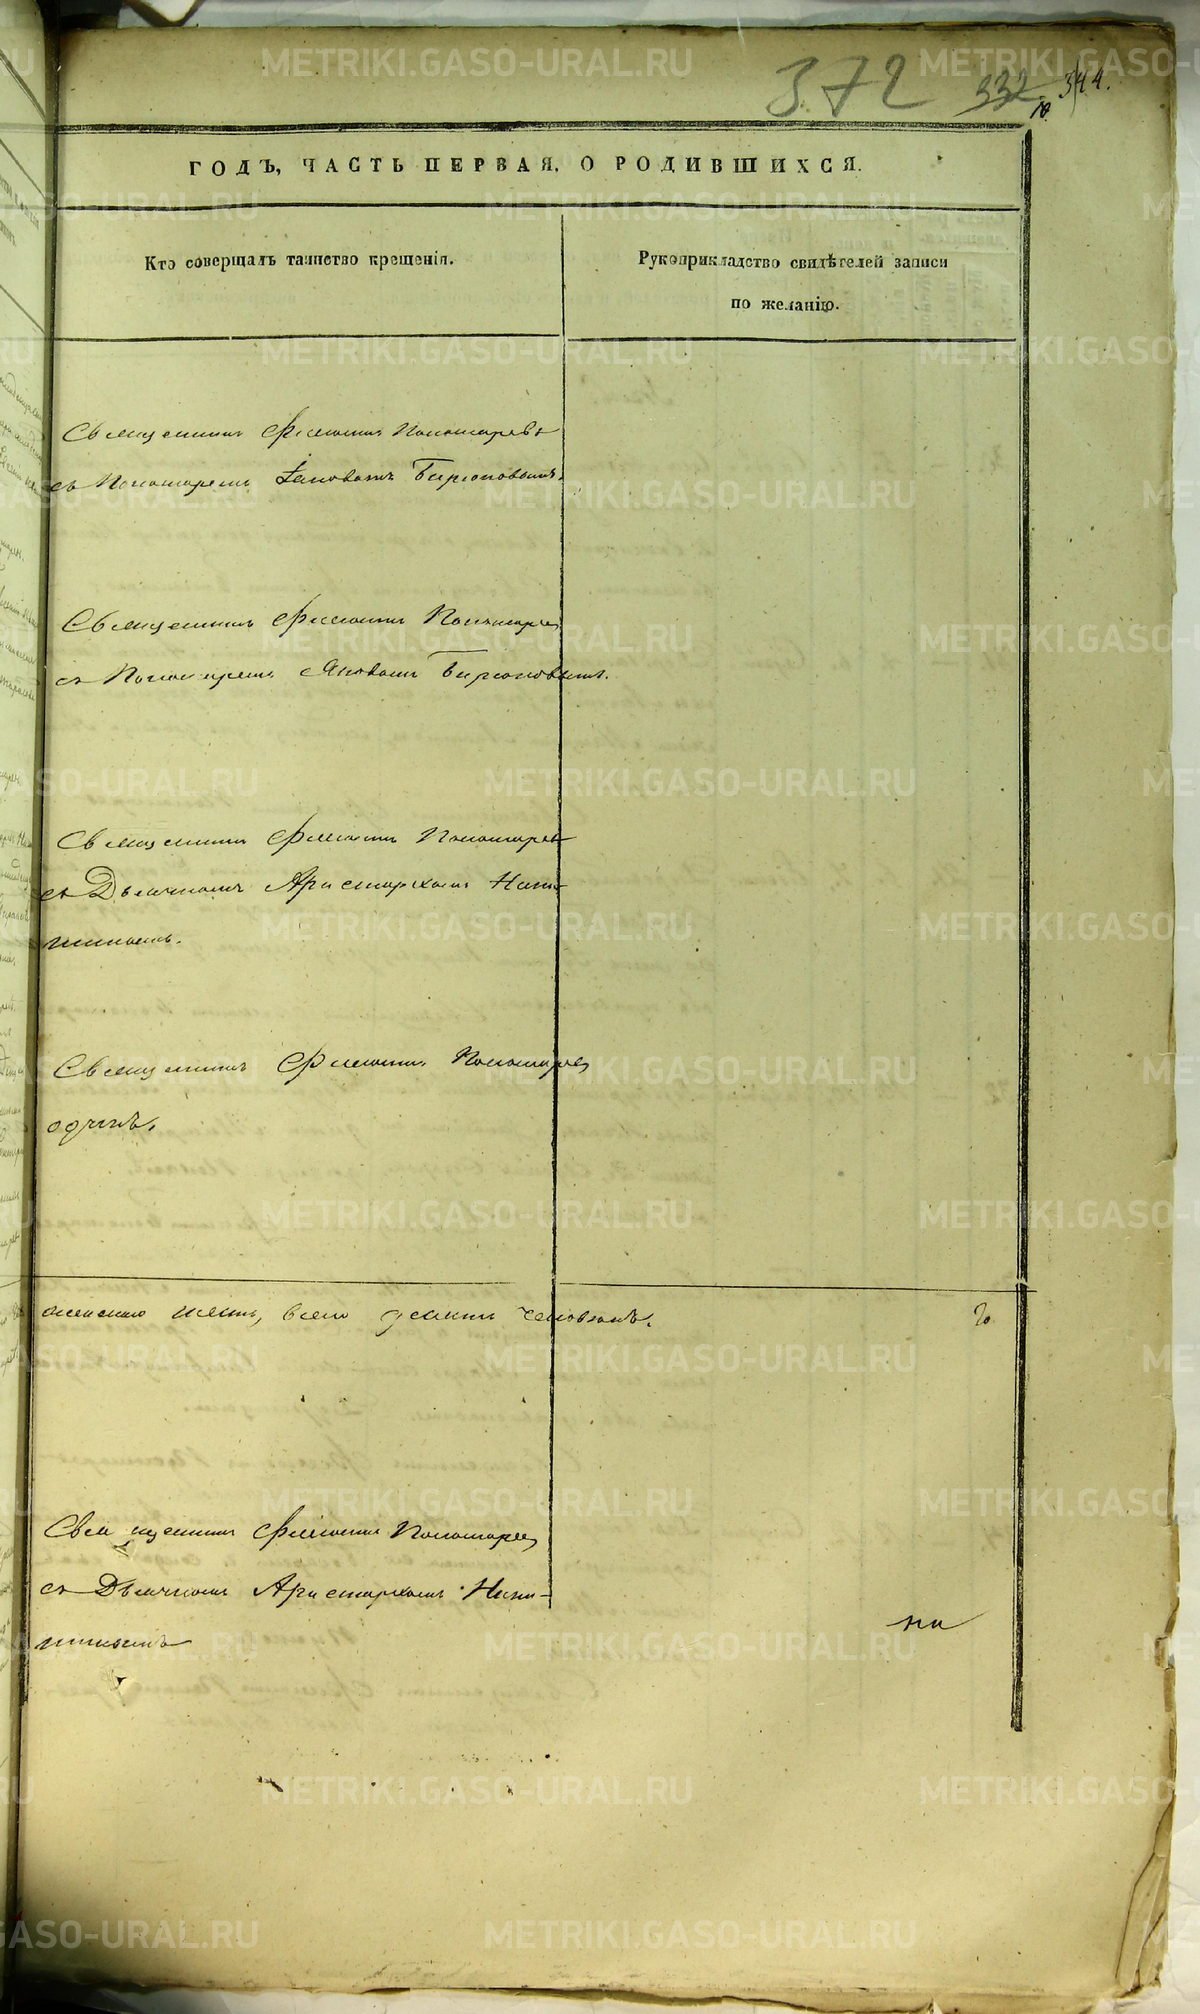 372 332 344.
10.
ГОДЪ, ЧАСТЬ ПЕРВАЯ, О РОДИВШИХСЯ.
Кто совершалъ таинство крещенія.
Рукоприкладство свидѣтелей записи
по желанію.
Священникъ Филимонъ Пономаревъ
съ Пономаремъ Іаковомъ Бирюковымъ.
Священникъ Филимонъ Пономаре
съ Пономаремъ Яковомъ Бирюковымъ.
Священникъ Филимонъ Пономарев
съ Дьячкомъ Аристархомъ Ники-
тинымъ.
Священникъ Филимонъ Пономарев
одинъ.
женска пять, всего девять человѣкъ.
Священникъ Филимонъ Пономарев
съ Дьячкомъ Аристархомъ Ники-
тинымъ
на
METRIKI.GASO-URAL.RU